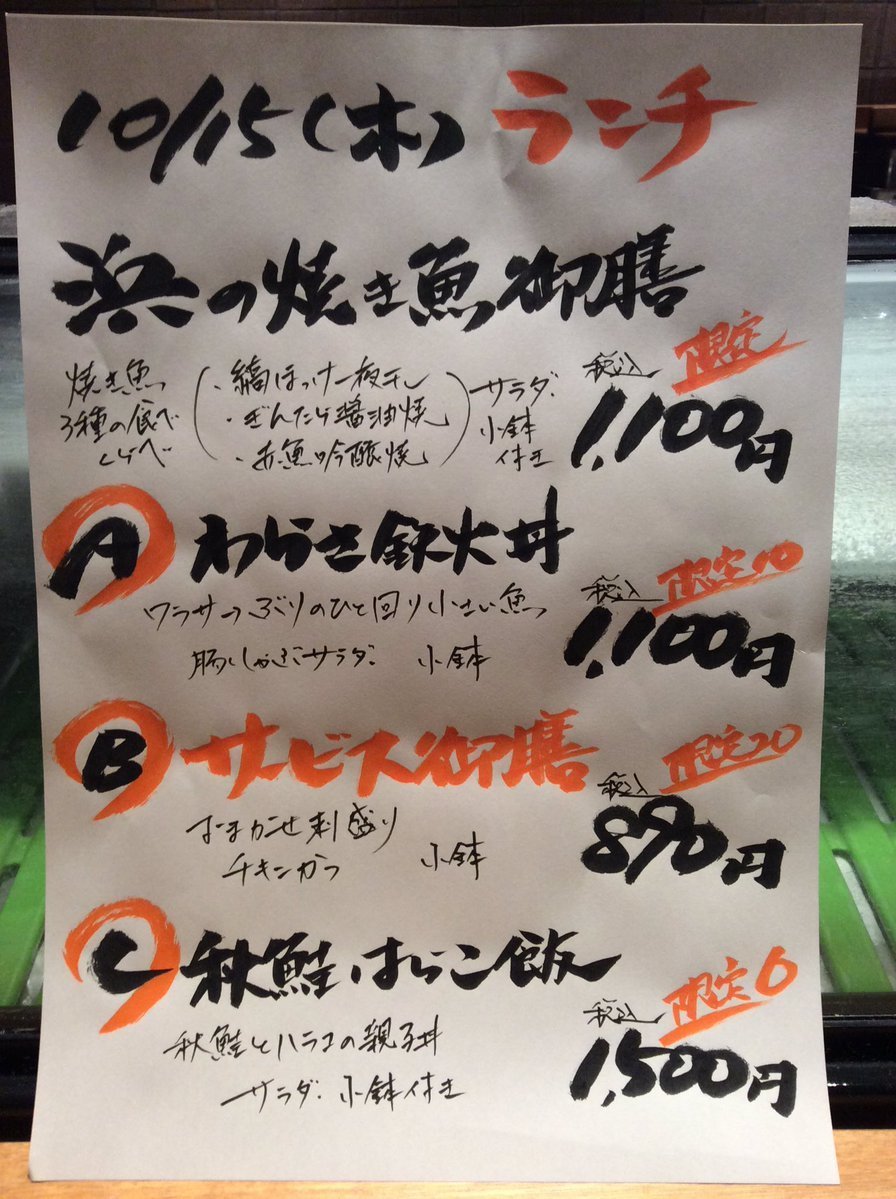 10/15(木) ランチ
浜の焼き魚御膳
限定
焼き魚
3種の食べ
くらべ
・縞ほっけ一夜干し
・ぎんだら醤油焼
・赤魚吟醸焼
サラダ、
小鉢
付き
税込
1,100円
A わらさ鉄火丼
限定10
ワラサ→ぶりのひと回り小さい魚
豚しゃぶサラダ、 小鉢
税込
1,100円
B サービス御膳
限定20
おまかせ刺盛り
チキンかつ 小鉢
税込
890円
C 秋鮭はらこ飯
限定6
秋鮭とハラコの親子丼
サラダ、小鉢付き
税込
1,500円